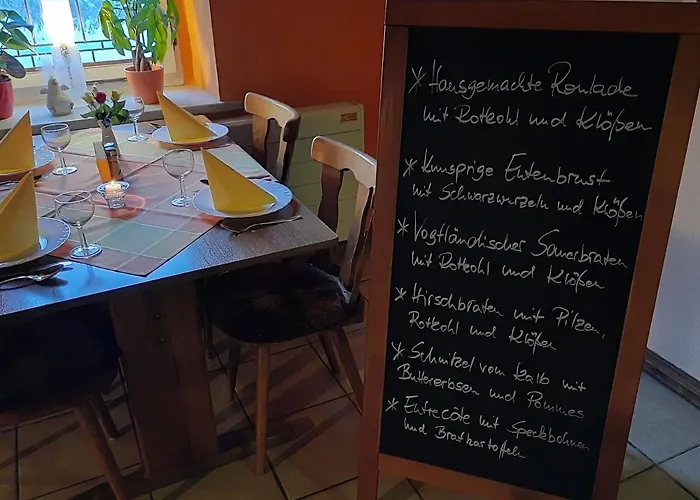 * Hausgemachte Roulade
mit Rotkohl und Klößen
* Knusprige Entenbrust
mit Schwarzwurzeln und Klößen
* Vogtländischer Sauerbraten
mit Rotkohl und Klößen
* Hirschbraten mit Pilzen,
Rotkohl und Klößen
* Schnitzel vom Kalb mit
Buttererbsen und Pommes
* Entrecôte mit Speckbohnen
und Bratkartoffeln